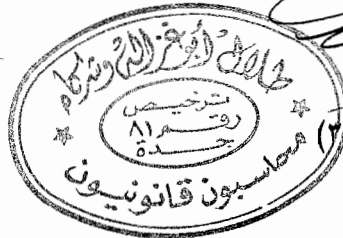 طلال أبو غزاله وشركاه
ترخيص
رقم ٨١
جدة
محاسبون قانونيون